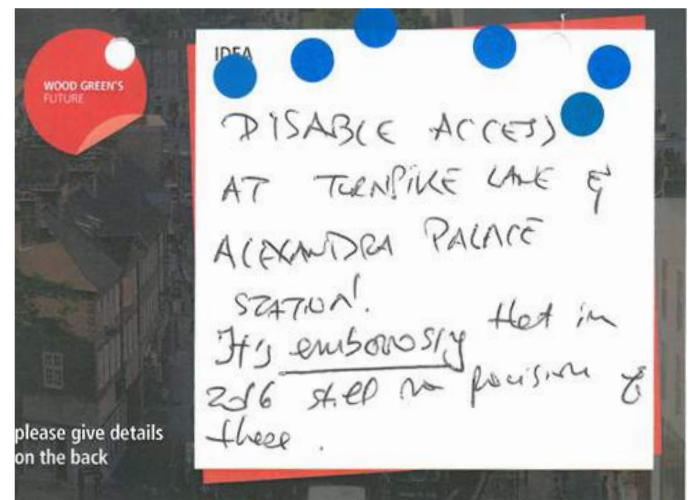 WOOD GREEN'S
FUTURE
IDEA
DISABLE ACCESS
AT TURNPIKE LANE &
ALEXANDRA PALACE
STATION!
It's embarossly that in
2016 still no provision of
these.
please give details
on the back